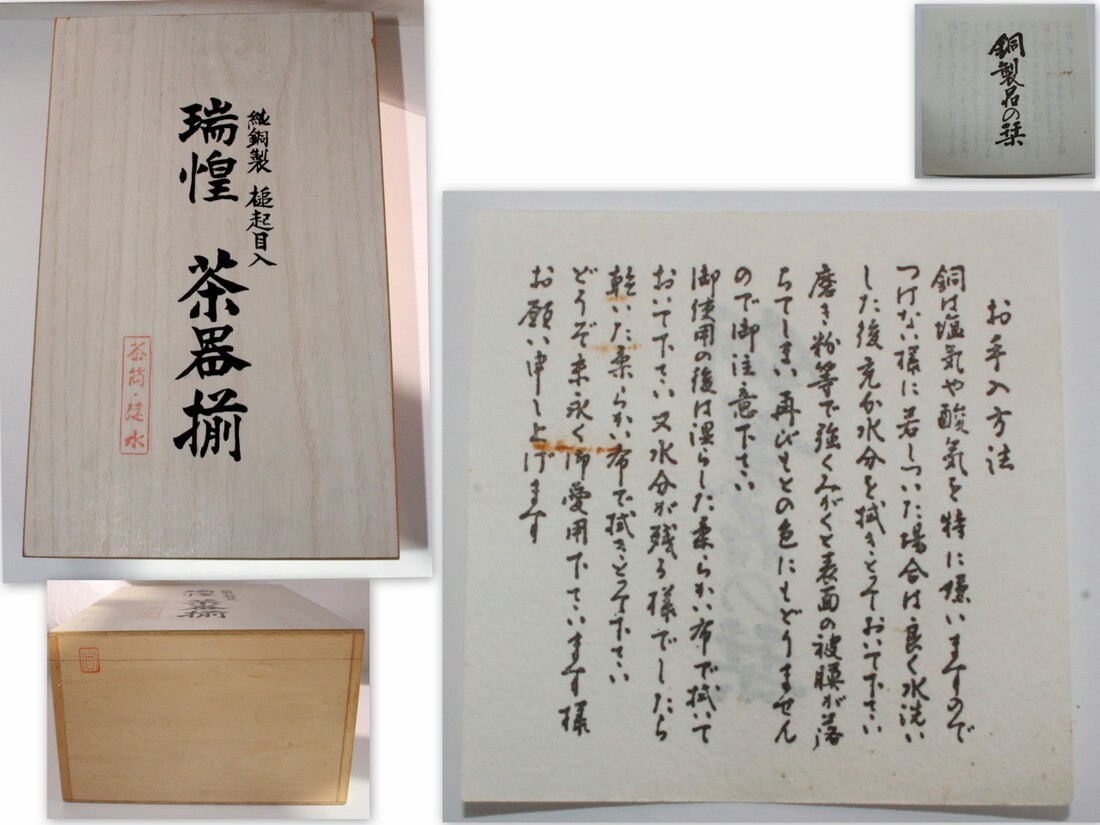 純銅製 槌起目入
瑞惶 茶器揃
茶筒・建水
銅製品の栞
お手入方法
銅は塩気や酸気を特に嫌いますので
つけない様に若しついた場合は良く水洗い
した後充分水分を拭きとっておいて下さい
磨き粉等で強くみがくと表面の被膜が落
ちてしまい再びもとの色にもどりません
ので御注意下さい
御使用の後は湿らした柔らかい布で拭いて
おいて下さい又水分が残る様でしたら
乾いた柔らかい布で拭きとって下さい
どうぞ末永く御愛用下さいます様
お願い申し上げます